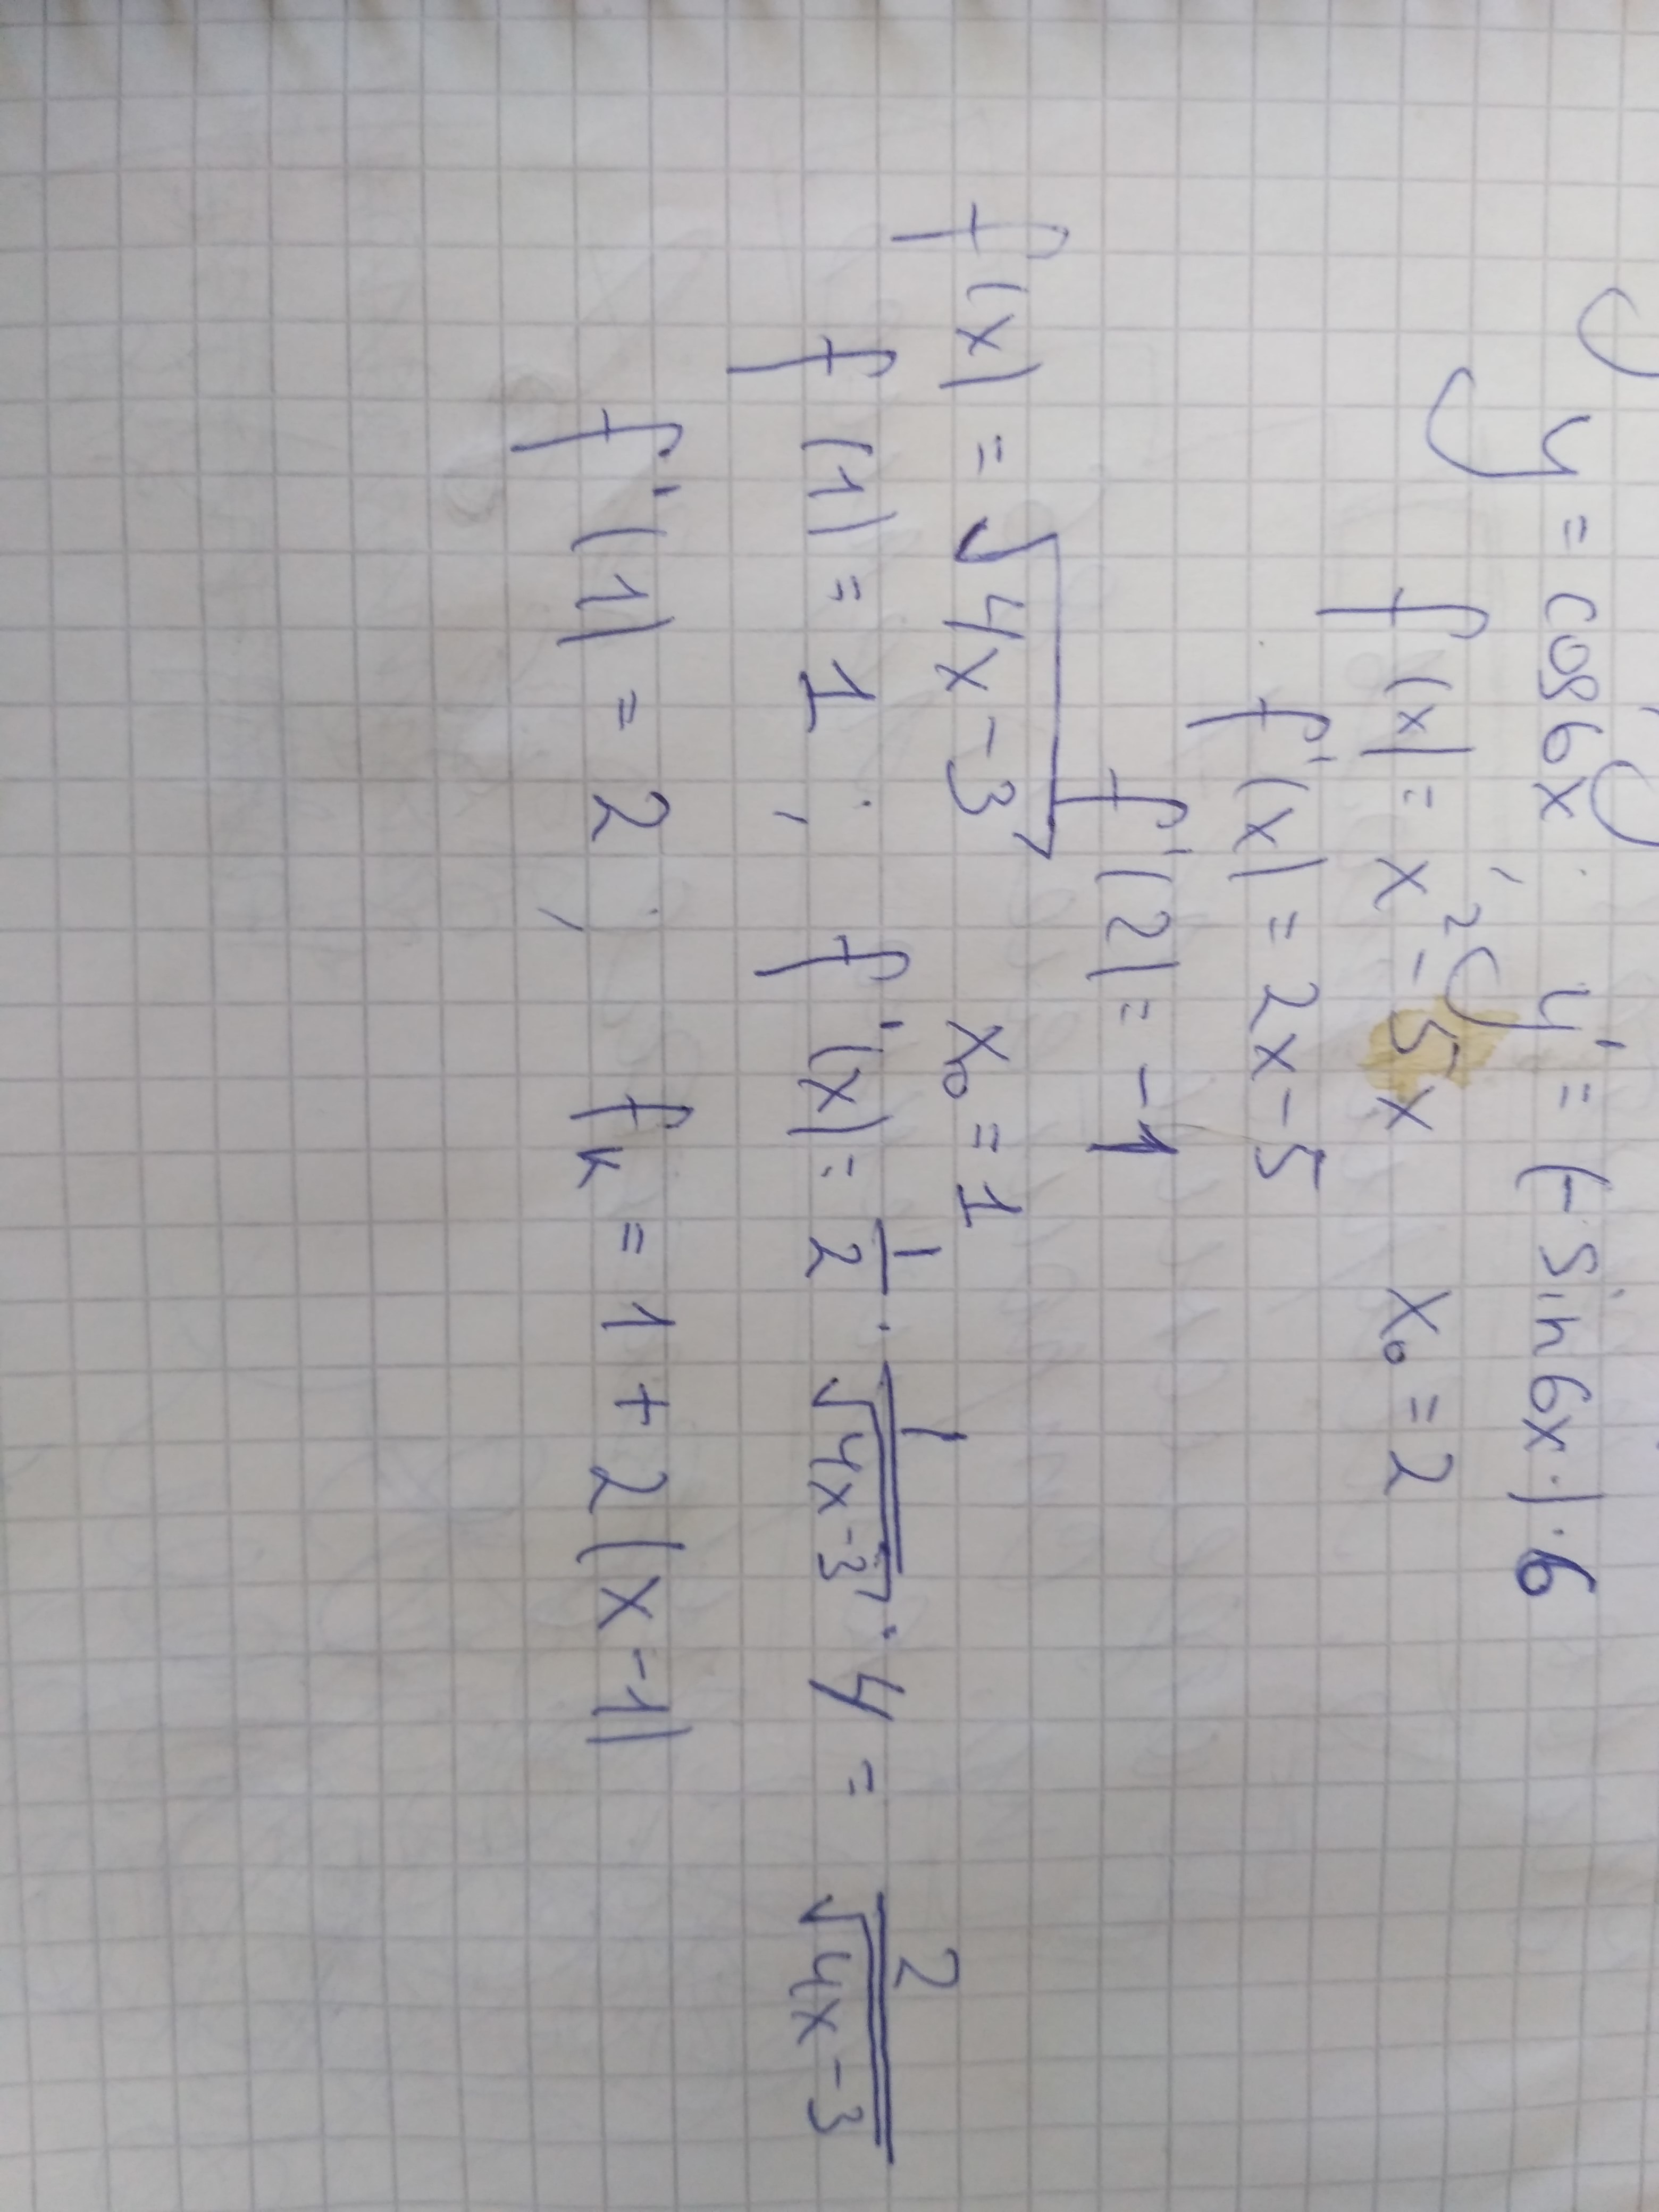 y = cos 6x ; y' = (-sin 6x·) · 6
f(x) = x² - 5x x₀ = 2
f'(x) = 2x - 5
f'(2) = -1
f(x) = √4x - 3 x₀ = 1
f(1) = 1 ; f'(x) = 1/2 · 1/√4x-3 · 4 = 2/√4x-3
f'(1) = 2 ; fκ = 1 + 2(x - 1)